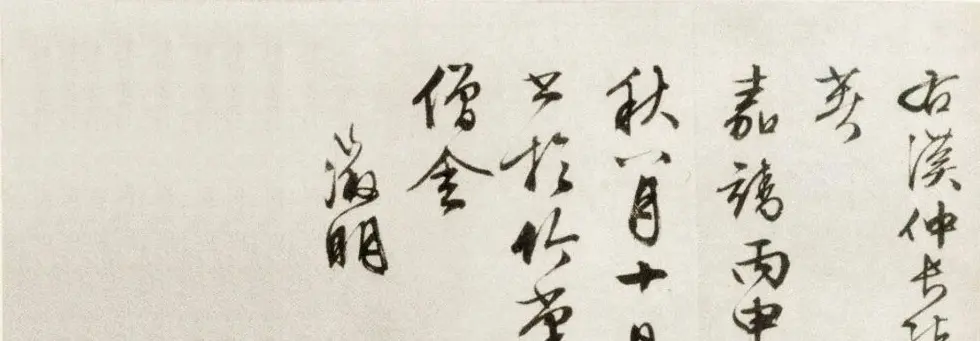 右漢仲長
嘉靖丙申
秋八月十日
書於竹堂
僧舍
徵明